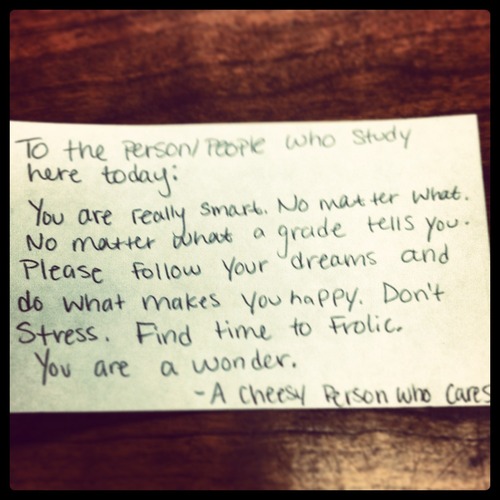 To the Person/People who study
here today:
You are really smart. No matter what.
No matter what a grade tells you.
Please follow your dreams and
do what makes you happy. Don't
Stress. Find time to Frolic.
You are a wonder.
- A Cheesy Person who Cares